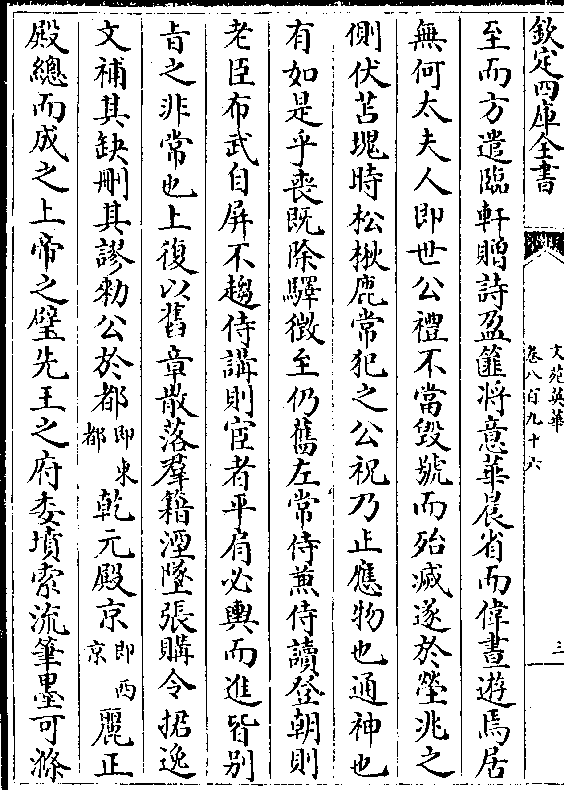 欽定四庫全書
文苑英華
卷八百九十六
三
至而方遣臨軒贈詩盈篚將意華晨省而偉晝遊焉居
無何太夫人即世公禮不當毀號而殆滅遂於塋兆之
側伏苫塊時松楸鹿常犯之公祝乃止應物也通神也
有如是乎喪既除驛徵至仍舊左常侍兼侍讀登朝則
老臣布武自屏不趨侍講則宦者平肩必輿而進皆别
㫖之非常也上復以舊章散落羣籍湮墜張購令捃逸
文補其缺刪其謬勑公於都即東都乾元殿京即西京麗正
殿總而成之上帝之璧先王之府委墳索流筆墨可滌